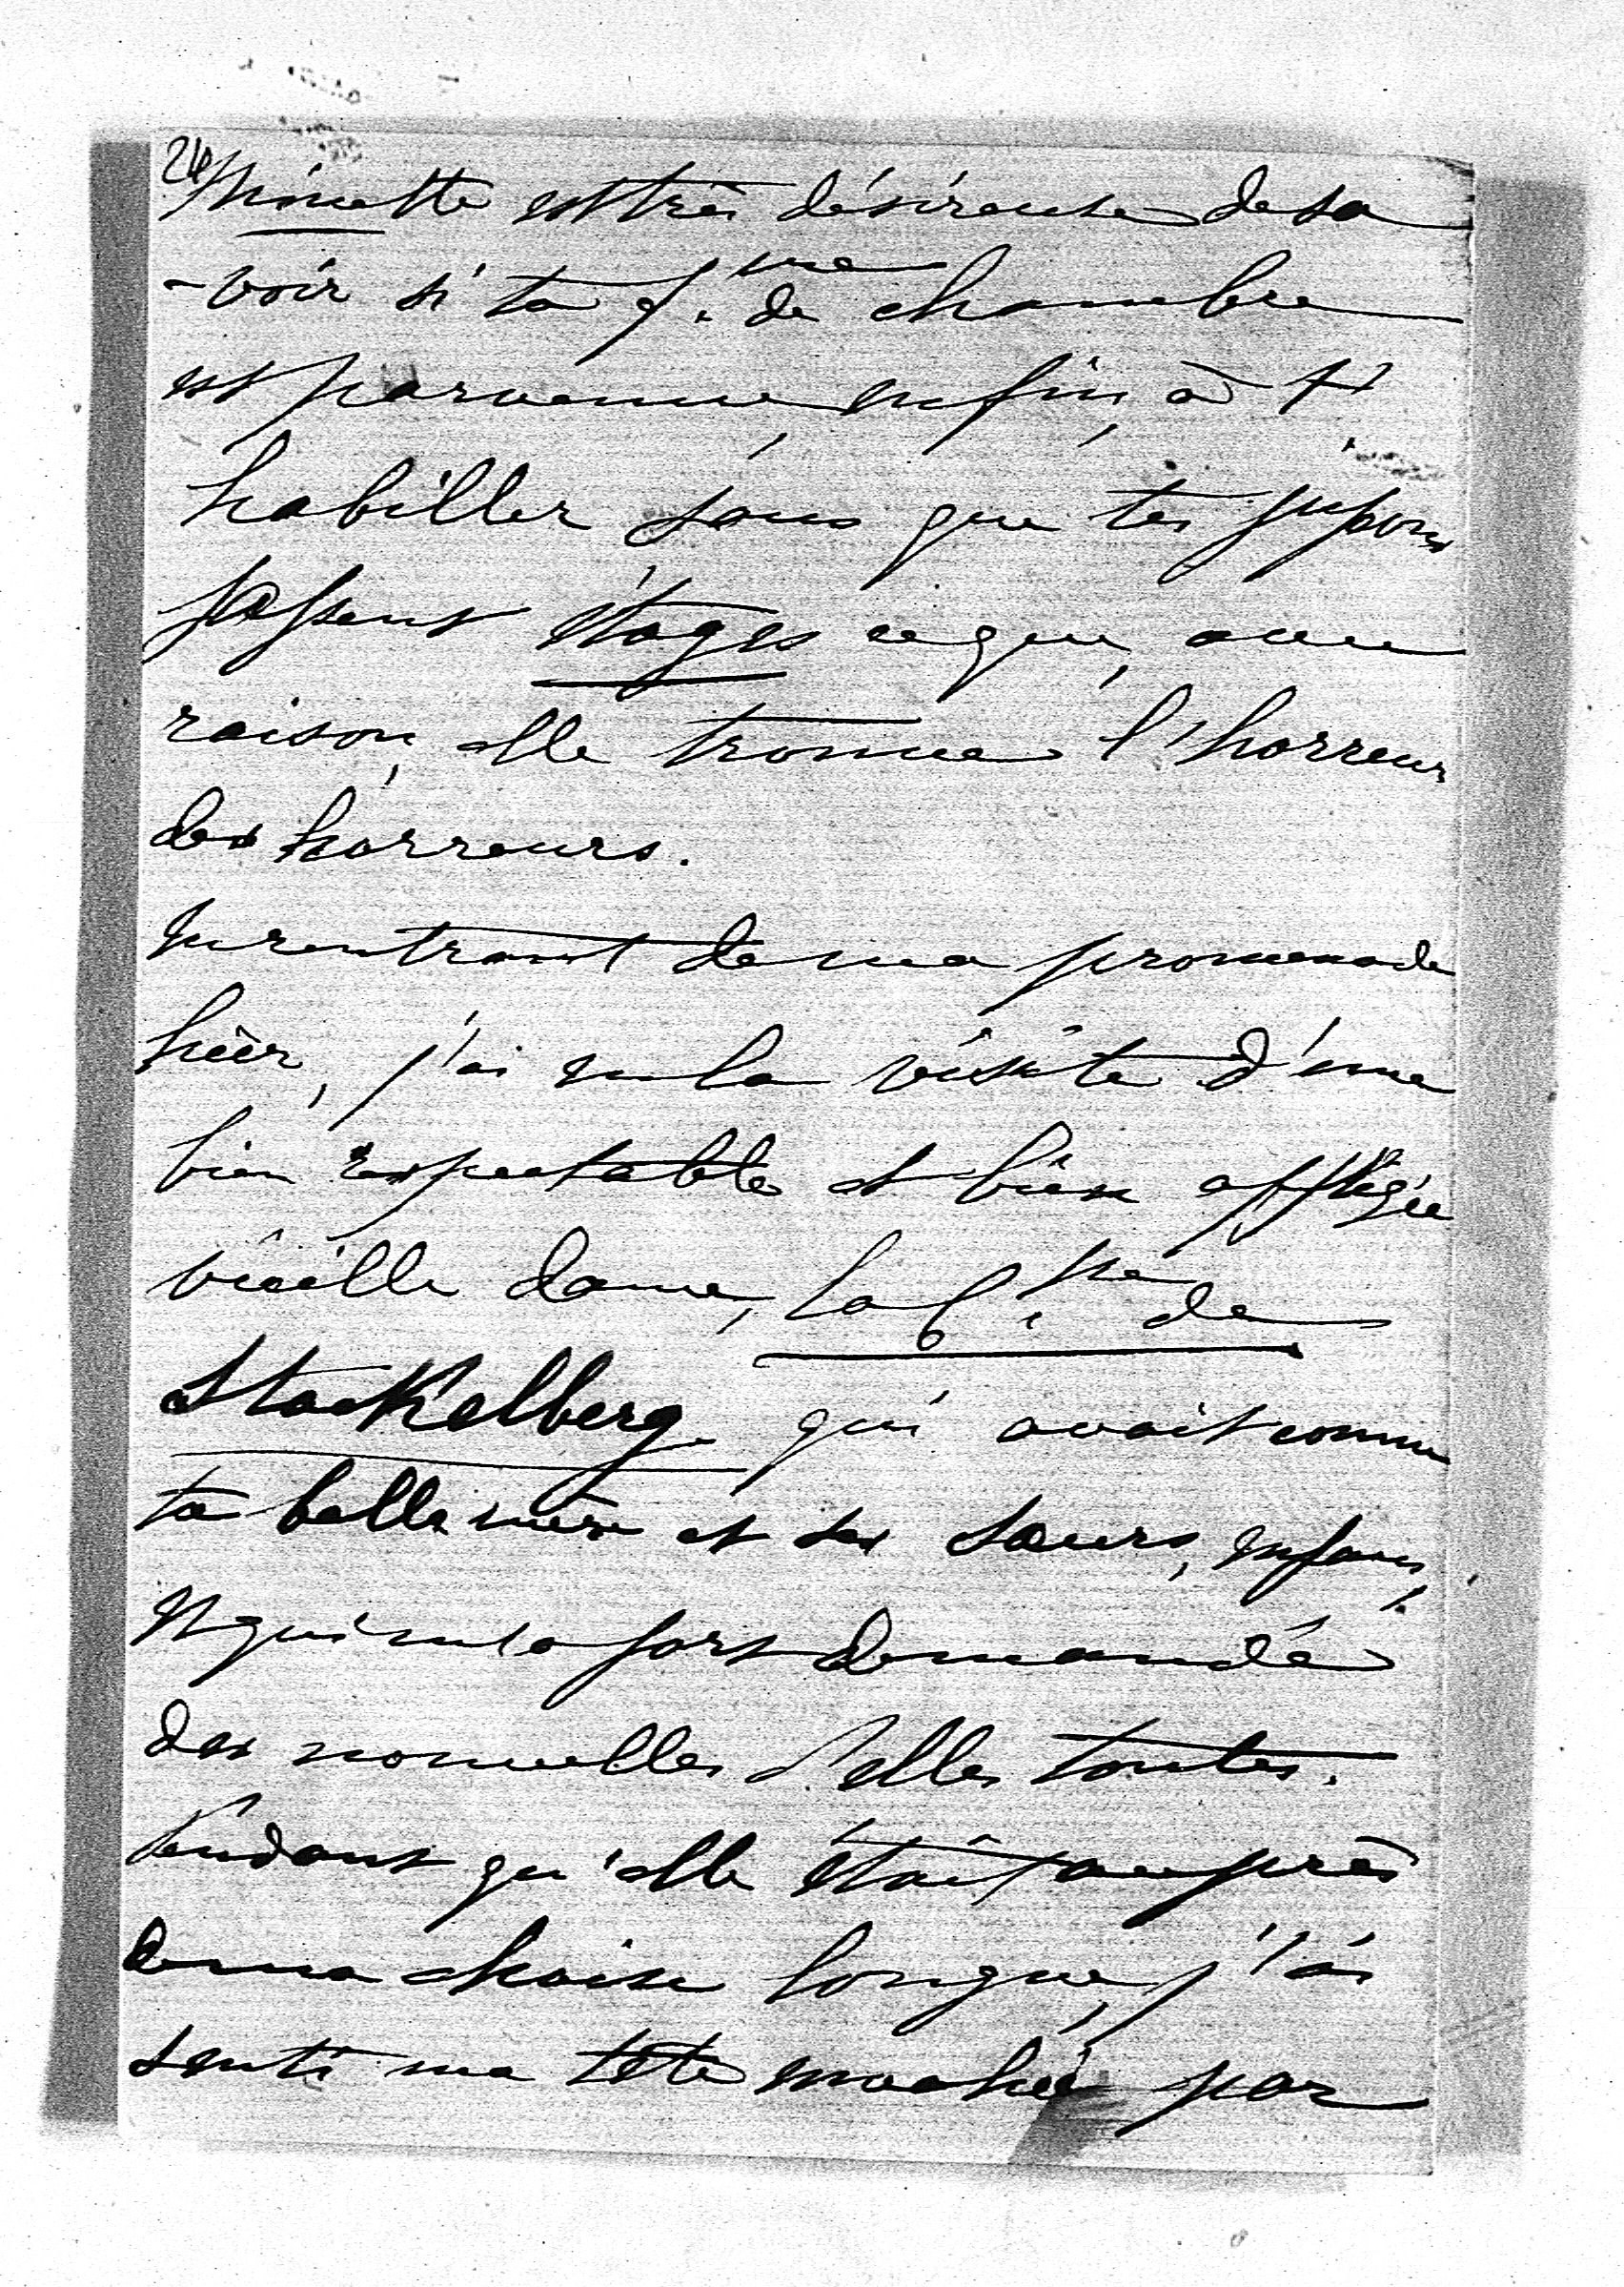 26
Minette est très désireuse de sa
-voir si ta f.me de chambre
est parvenue enfin, à t'
habiller sans que tes jupons
fassent étages ce que, avec
raison, elle trouve l'horreur
des horreurs.
En rentrant de ma promenade
hier, j'ai eu la visite d'une
bien respectable et bien affligée
vieille dame, la C.sse de
Stackelberg qui avait connu
ta belle mère et ses sœurs, enfans,
et qui m'a fort demandé
des nouvelles d'elles toutes.
Pendant qu'elle était auprès
de ma chaise longue, j'ai
senti ma tête par